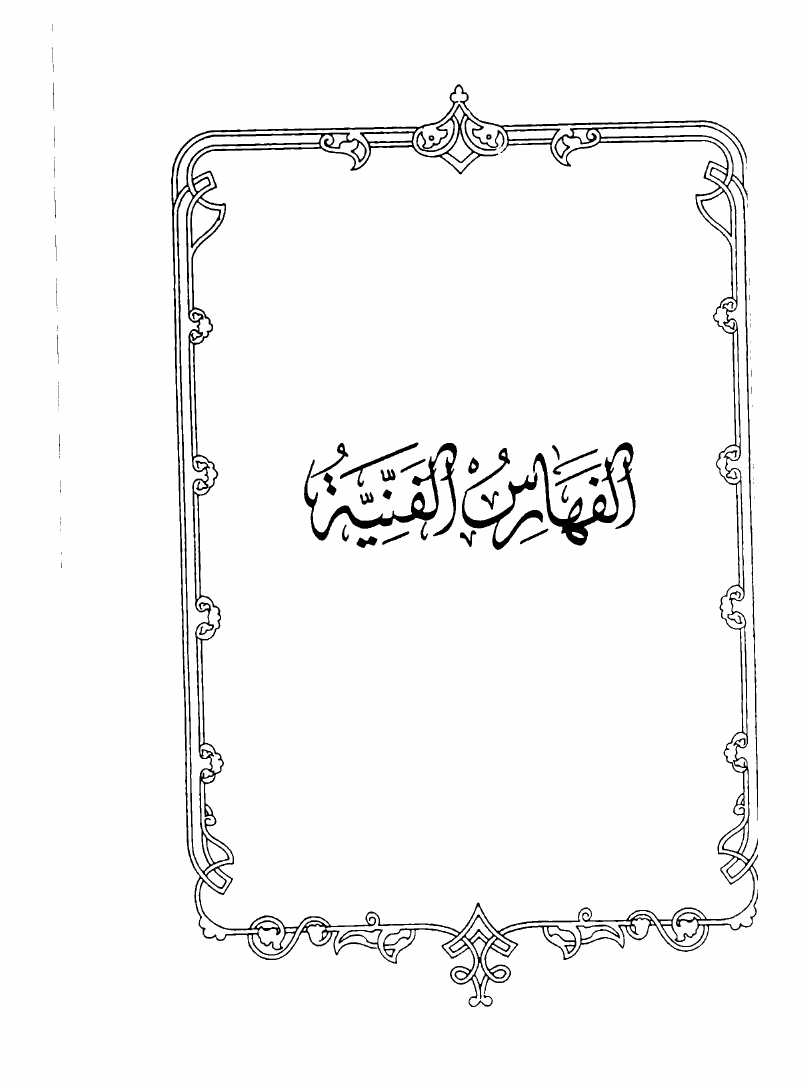 الفَهَارِسُ الفَنِّيَّةُ